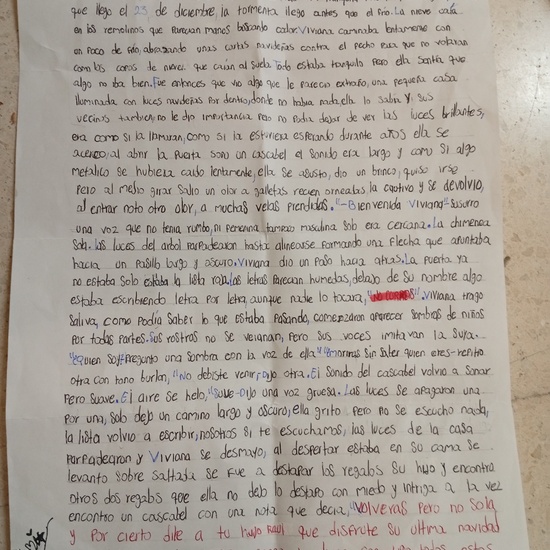 que llego el 23 de diciembre, la tormenta llego antes que el frio. La nieve caía
en los remolinos que parecian manos buscando calor. Viviana caminaba lentamente con
un poco de frio, abrazando unas cartas navideñas contra el pecho para que no volaran
como los copos de nieve que caían al suelo. Todo estaba tranquilo pero ella sentía que
algo no iba bien. Fue entonces que vio algo que le parecio extraño, una pequeña casa
iluminada con luces navideñas por dentro, donde no habia nada, ella lo sabia y sus
vecinos tambien, no le dio importancia pero no podia dejar de ver las luces brillantes,
era como si la llamaran, como si la estuviera esperando durante años ella se
acerco, al abrir la puerta sono un cascabel el sonido era largo y como si algo
metalico se hubiera caido lentamente, ella se asusto, dio un brinco, quiso irse
pero al medio girar salio un olor a galletas recien orneadas, la cautivo y se devolvio,
al entrar noto otro olor, a muchas velas prendidas. "-Bienvenida Viviana" susurro
una voz que no tenia rumbo, ni femenina tampoco masculina solo era cercana. La chimenea
sola. las luces del arbol parpadearon hasta alinearse formando una flecha que apuntaba
hacia un pasillo largo y oscuro. Viviana dio un paso hacia atras. La puerta ya
no estaba solo estaba la lista roja. las letras parecian humedas, debajo de su nombre algo
estaba escribiendo letra por letra, aunque nadie lo tocara, "NO CORRAS". Viviana trago
saliva, como podía saber lo que estaba pasando, comenzaron aparecer sombras de niños
por todas partes. Sus rostros no se veian, pero sus voces imitavan la suya.
"¿Quien soy?" pregunto una sombra con la voz de ella "moriras sin saber quien eres-
otra con tono burlon, "No debiste venir, dijo otra. El sonido del cascabel volvio a sonar
pero suave. El aire se helo, "sube-Dijo una voz gruesa. Las luces se apagaron una
por una, solo dejo un camino largo y oscuro, ella grito pero no se escucho nada,
la lista volvio a escribir, nosotros si te escuchamos, las luces de la casa
parpadearon y Viviana se desmayo, al despertar estaba en su cama se
levanto sobre saltada se fue a destapar los regalos su hijo y encontro
otros dos regalos que ella no dejo lo destapo con miedo y intriga a la vez
encontro un cascabel con una nota que decia, "VOLVERAS pero no sola
y por cierto dile a tu hijo que disfrute su ultima navidad